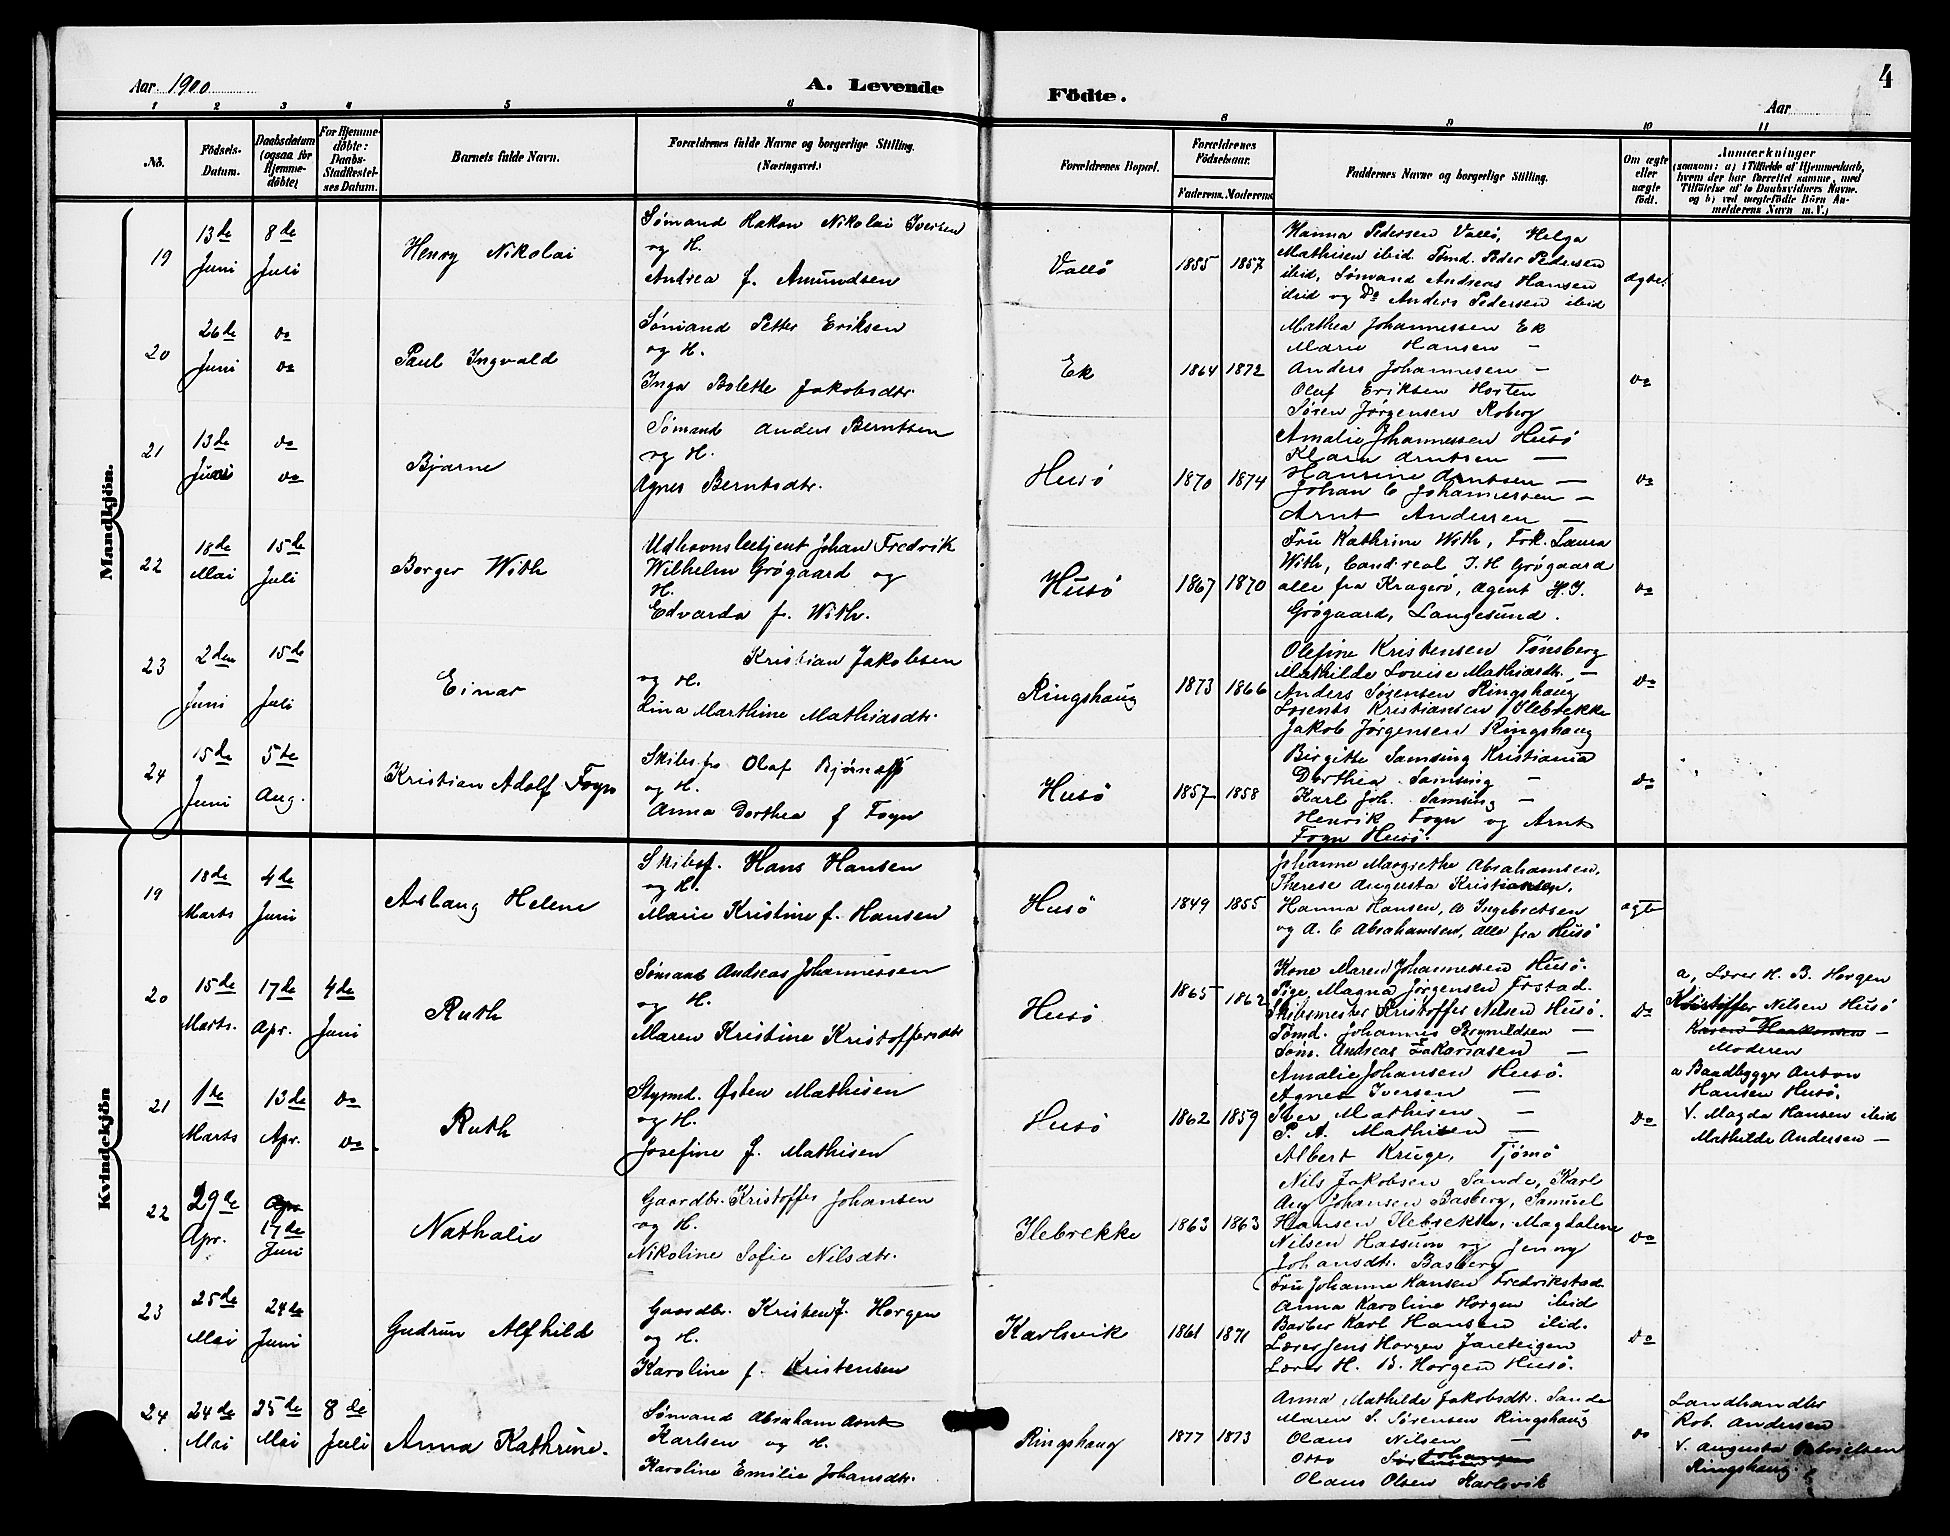 Aar 1900
A. Levende
Födte.
Aar
4
1 2 3 4 5 6 8 9 10 11
No.
Födsels-Datum.
Daabsdatum (ogsaa for Hjemmedöbte)
For Hjemmedöbte: Daabs-Stadfestelses Datum.
Barnets fulde Navn.
Forældrenes fulde Navne og borgerlige Stilling.
(Næringsvei.)
Forældrenes Bopæl.
Forældrenes Födselsaar.
Faderens. Moderens
Faddernes Navne og borgerlige Stilling.
Om ægte eller uægte födt.
Anmærkninger
(saasom: a) i Tilfælde af Hjemmedaab,
hvem der har forrettet samme, med
Tilföielse af to Daabsvidners Navne.
og b) ved uægtefödte Börn An-
melderens Navn m. V.)
Mandkjön.
19
13de Juni
8de Juli
Henry Nikolai
Sømand Hakon Nikolai Iversen
og H.
Andrea f. Amundsen
Vallö
1855 1857
Hanna Pedersen Vallö, Helga
Mathisen ibid Tømd. Peder Pedersen
ibid, Sømand Andreas Hansen
ibid og Do Anders Pedersen ibid
ægte
20
26de Juni
do do
Paul Ingvald
Sømand Petter Eriksen
og H.
Inga Bolette Jakobsdtr.
Ek
1864 1872
Mathea Johannessen Ek
Marie Hansen —
Anders Johannesen —
Oluf Eriksen Horten
Søren Jørgensen Roberg
do
21
13de Juni
do do
Bjarne
Sømand Anders Berntsen
og H.
Agnes Berntsdtr.
Husö
1870 1874
Amalie Johannessen Husö
Klara Arntsen —
Hansine Arntsen —
Johan C Johannessen —
Arnt Andersen —
do
22
18de Mai
15de Juli
Borger With
Johan Fredrik
Wilhelm Grögaard og
H.
Edvarda f. With.
Husö
1867 1870
Fru Kathrine With, Frk. Laura
With, Cand real J. H Grögaard
alle fra Kragerö, Agent H. J.
Grögaard, Langesund.
do
23
2den Juni
15de Juli
Einar
Kristian Jakobsen
og H.
Lina Marthine Mathiasdtr.
Ringshaug
1873 1866
Olefine Kristensen Tønsberg
Mathilde Lovise Mathiasdtr. —
Anders Sørensen Ringshaug
Lorents Kristiansen Ilebrekke
Jakob Jørgensen Ringshaug
do
24
15de Juni
5te Aug.
Kristian Adolf Foyn
Skibsf. Olaf
og H.
Anna Dorthea f Foyn
Husö
1857 1858
Birgitte Samsing Kristiania
Dorthea Samsing —
Karl Joh. Samsing —
Henrik Foyn og Arnt
Foyn Husö.
do
Kvindekjön
19
18de Marts
4de Juni
Aslaug Helene
Skibsf. Hans Hansen
og H.
Marie Kristine f. Hansen
Husö
1849 1855
Johanne Margrethe Abrahamsen,
Therese Augusta Kristiansen,
Hanna Hansen, A Ingebretsen
og A. C Abrahamsen, alle fra Husö
ægte
20
15de Marts.
17de Apr.
4de Juni
Ruth
Sømand Andreas Johannessen
og H.
Maren Kristine Kristoffersdtr
Husö
1865 1862
Kone Maren Johannessen Husö.
Pige Magna Jörgensen Frstad.
Skibsmester Kristoffer Nilsen Husö.
Tømd. Johannes Brynildsen —
Søm. Andreas Zakariasen —
do
a, Lærer H. B. Horgen
Kristoffer Nilsen Husö
Karen Haakonsen —
Moderen
21
1te Marts
13de Apr.
do do
Ruth
Styrmd. Østen Mathisen
og H.
Josefine f. Mathisen
Husö
1862 1859
Amalie Johansen Husö.
Agnes Iversen —
Iver Mathisen —
P. A. Mathisen —
Albert Kruge, Tjømø
do
a Baadbygger Anton
Hansen Husö.
V. Magda Hansen ibid
Mathilde Andersen —
22
29de Apr.
Apr.
17de Juni
Nathalie
Gaardbr. Kristoffer Johansen
og H.
Nikoline Sofie Nilsdtr.
Ilebrekke
1863 1863
Nils Jakobsen Sande, Karl
Aug Johansen Basberg, Samuel
Hansen Ilebrekke, Magdalene
Nilsen Hassum og Jenny
Johansdtr. Basberg
do
23
25de Mai
24de Juni
Gudrun Alfhild
Gaardbr. Kristen J. Horgen
og H.
Karoline f. Kristensen
Karlsvik
1861 1871
Fru Johanne Hansen Fredrikstad
Anna Karoline Horgen ibid
Barber Karl Hansen ibid.
Lærer Jens Horgen Jareteigen
Lærer H. B. Horgen Husö.
do
24
24de Mai
25de Mai
8de Juli
Anna Kathrine.
Sømand Abraham Arnt
Karlsen og H.
Karoline Emilie Johansdtr.
Ringshaug
1877 1873
Anna Mathilde Jakobsdtr. Sande
Maren S. Sørensen Ringshaug
Olaus Nilsen —
Otto
Olaus Olsen Karlsvik
do
Landhandler
Rob. Andersen
V. Augusta
Ringshaug.